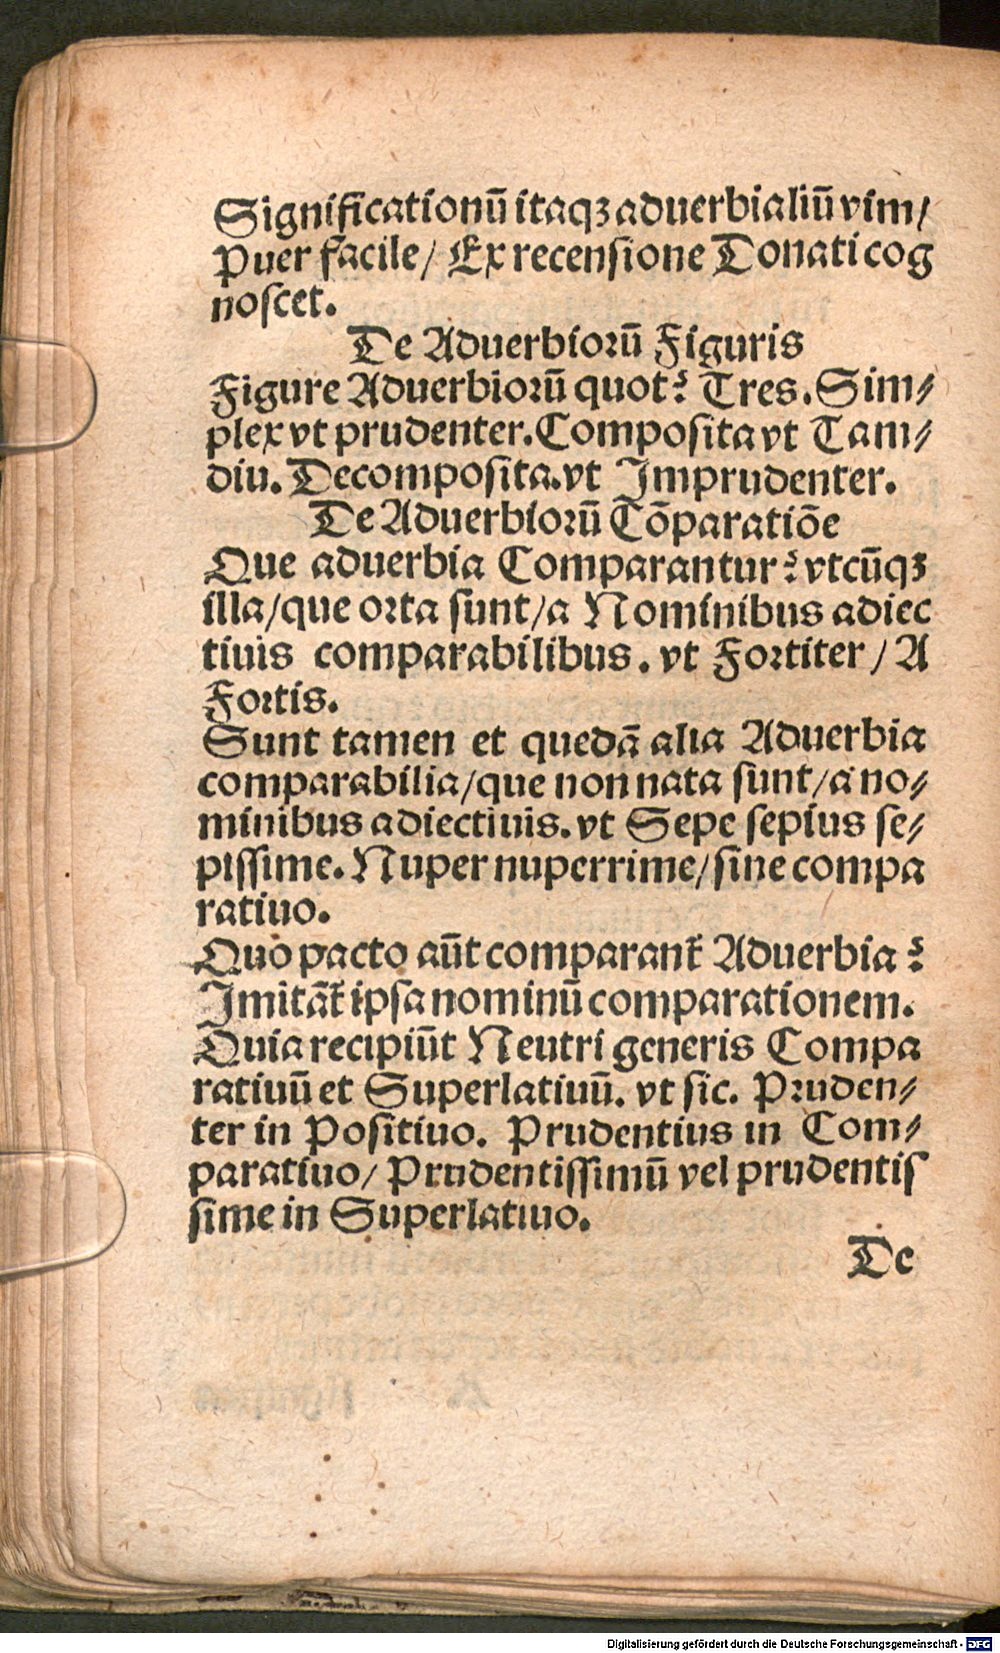 Significationū itaqꝫ aduerbialiū vim/
Puer facile/ Ex recensione Donati cog
noscet.
De Aduerbiorū Figuris
Figure Aduerbiorū quot? Tres. Sim⸗
plex vt prudenter. Composita vt Tam⸗
diu. Decomposita. vt Imprudenter.
De Aduerbiorū Cōparatiōe
Que aduerbia Comparantur? vtcūqꝫ
illa/ que orta sunt/ a Nominibus adiec
tiuis comparabilibus. vt Fortiter / A
Fortis.
Sunt tamen et quedā alia Aduerbia
comparabilia/ que non nata sunt/ a no⸗
minibus adiectiuis. vt Sepe sepius se⸗
pissime. Nuper nuperrime/ sine compa
ratiuo.
Quo pacto aūt comparant᷑ Aduerbia?
Imitāt᷑ ipsa nominū comparationem.
Quia recipiūt Neutri generis Compa
ratiuū et Superlatiuū. vt sic. Pruden⸗
ter in Positiuo. Prudentius in Com⸗
paratiuo/ Prudentissimū vel prudentis
sime in Superlatiuo.
De
Digitalisierung gefördert durch die Deutsche Forschungsgemeinschaft - DFG